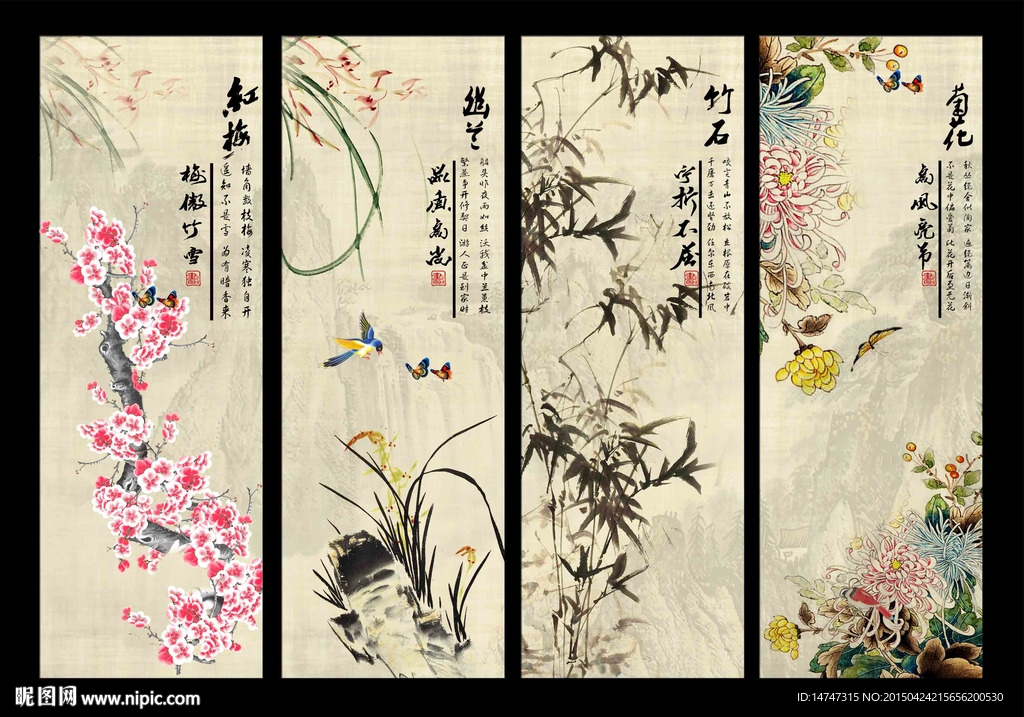 红梅
梅傲竹雪
墙角数枝梅 凌寒独自开
遥知不是雪 为有暗香来
幽兰
品质高尚
船头昨夜雨如丝 沃我盆中兰蕙枝
繁蕊争开修禊日 游人正是到家时
竹石
宁折不屈
咬定青山不放松 立根原在破岩中
千磨万击还坚劲 任尔东西南北风
菊花
高风亮节
秋丛绕舍似陶家 遍绕篱边日渐斜
不是花中偏爱菊 此花开后更无花
昵图网 www.nipic.com
ID:14747315 NO:20150424215656200530